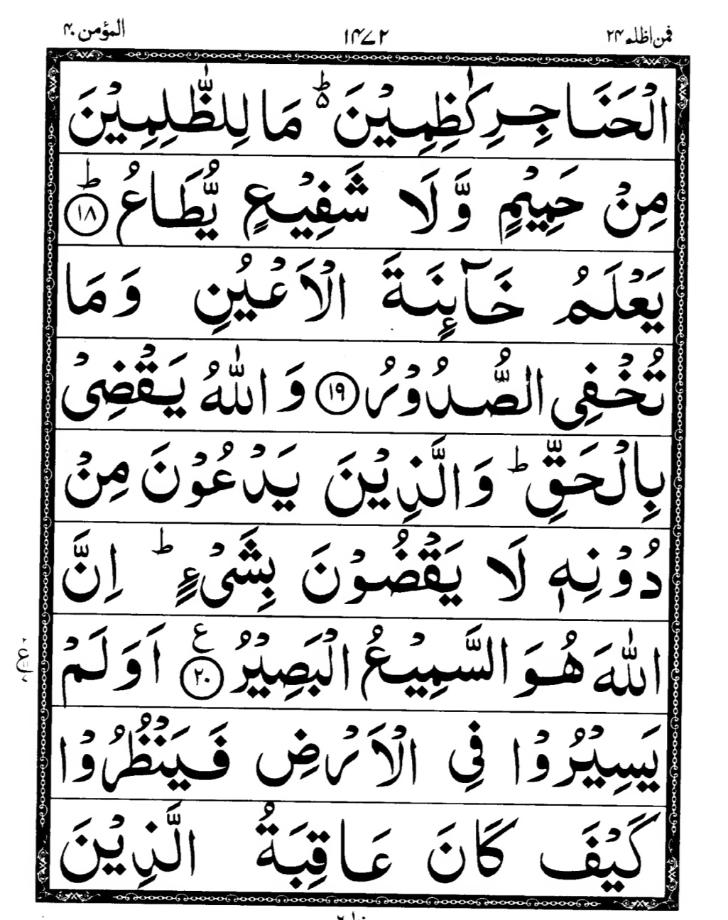 فمن اظلم ۲۴ ۱۴۷۲ المؤمن ۴۰
الْحَنَاجِرِ كٰظِمِيْنَ ؕ۬ مَا لِلظّٰلِمِيْنَ
مِنْ حَمِيْمٍ وَّلَا شَفِيْعٍ يُّطَاعُ ؕ ﴿۱۸﴾
يَعْلَمُ خَآئِنَةَ الْاَعْيُنِ وَمَا
تُخْفِى الصُّدُوْرُ ﴿۱۹﴾ وَاللّٰهُ يَقْضِىْ
بِالْحَقِّ ؕ وَالَّذِيْنَ يَدْعُوْنَ مِنْ
دُوْنِهٖ لَا يَقْضُوْنَ بِشَىْءٍ ؕ اِنَّ
اللّٰهَ هُوَ السَّمِيْعُ الْبَصِيْرُ ﴿۲۰﴾ ع اَوَلَمْ
يَسِيْرُوْا فِى الْاَرْضِ فَيَنْظُرُوْا
كَيْفَ كَانَ عَاقِبَةُ الَّذِيْنَ